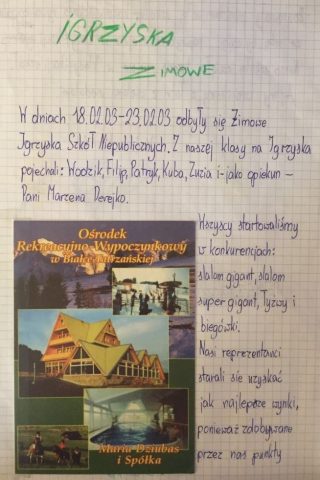 IGRZYSKA
ZIMOWE
W dniach 18.02.03-23.02.03 odbyły się Zimowe
Igrzyska Szkół Niepublicznych. Z naszej klasy na Igrzyska
pojechali: Wodzik, Filip, Patryk, Kuba, Zuzia i-jako opiekun –
Pani Marzena Derejko.
Ośrodek
Rekreacyjno-Wypoczynkowy
w Białce Tatrzańskiej
Maria Dziubas
i Spółka
Wszyscy startowaliśmy
w konkurencjach:
slalom gigant, slalom
super gigant, łyżwy i
biegówki.
Nasi reprezentanci
starali się uzyskać
jak najlepsze wyniki,
ponieważ zdobywane
przez nas punkty